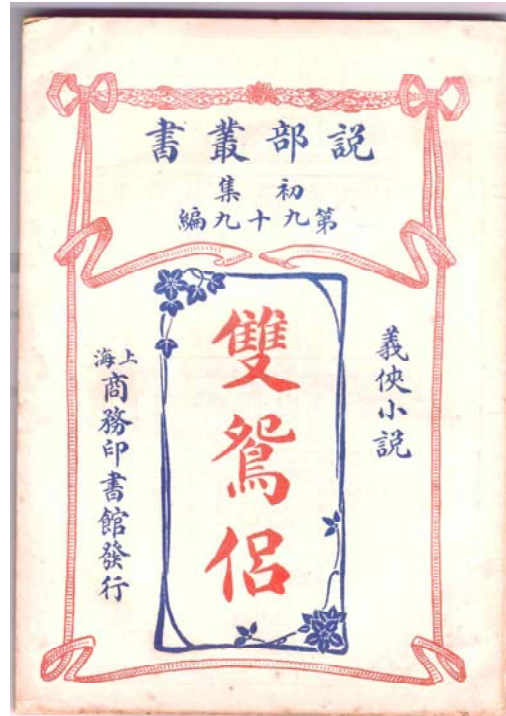 説部叢書
初集
第九十九編
義俠小説
雙鴛侶
上海商務印書館發行